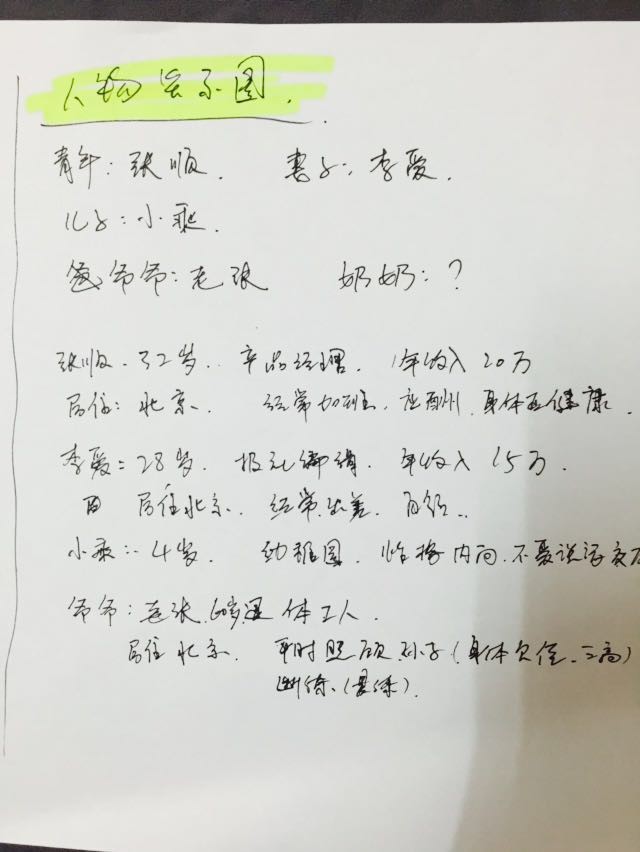 人物关系图.
青年:张顺. 妻子:李爱.
儿子:小乖.
爷爷:老张 奶奶:?
张顺.32岁. 产品经理. 年收入20万
居住:北京. 经常加班. 应酬. 身体亚健康.
李爱:28岁. 报社编辑. 年收入15万.
居住北京. 经常出差.
小乖:4岁. 幼稚园. 性格内向.不爱说话
爷爷:老张. 退休工人.
居住北京. 平时照顾孙子(身体欠佳.三高)